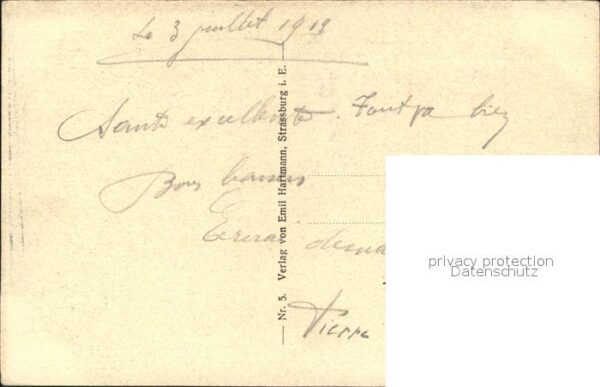 Le 3 juillet 1913
Santé excellente. Tout va bien
Bons baisers
Ecrirai dema
Pierre
Nr. 5. Verlag von Emil Hartmann, Strassburg i. E.
privacy protection
Datenschutz